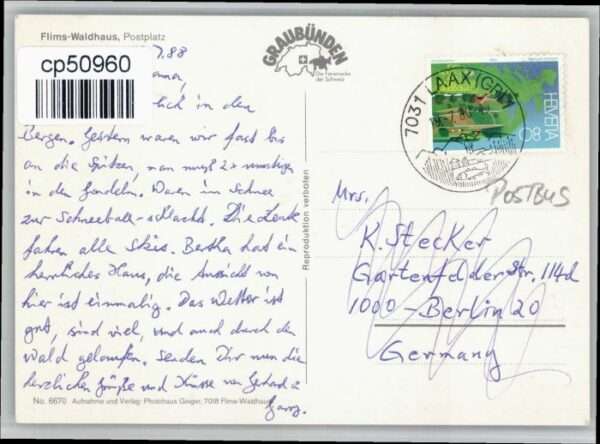 Flims-Waldhaus, Postplatz
cp50960
7.88
GRAUBÜNDEN
Die Ferienecke
der Schweiz
7031 LAAX (GR) 1
HELVETIA 80
POSTBUS
in den
Bergen. Gestern waren wir fast bis
an die Spitzen, man muß 2x umsteigen
in den Gondeln. Waren im Schnee
zur Schneeball-schlacht. Die Leute
fahren alle Skis. Bertha hat ein
herrliches Haus, die Aussicht von
hier ist einmalig. Das Wetter ist
gut, sind viel, und auch durch den
Wald gelaufen. Senden Dir nun die
herzlichen Grüße und Küsse von Gerhard &
Reproduktion verboten
Mrs.
K. Stecker
Gartenfelderstr. 114d
1000-Berlin 20
Germany
No. 6670 Aufnahme und Verlag: Photohaus Geiger, 7018 Flims-Waldhaus